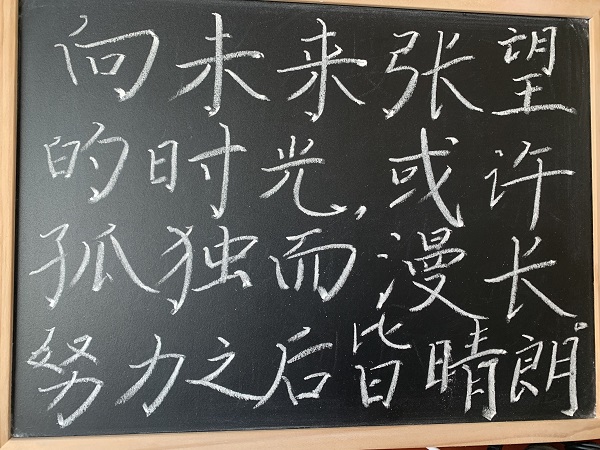 向未来张望
的时光,或许
孤独而漫长
努力之后皆晴朗。